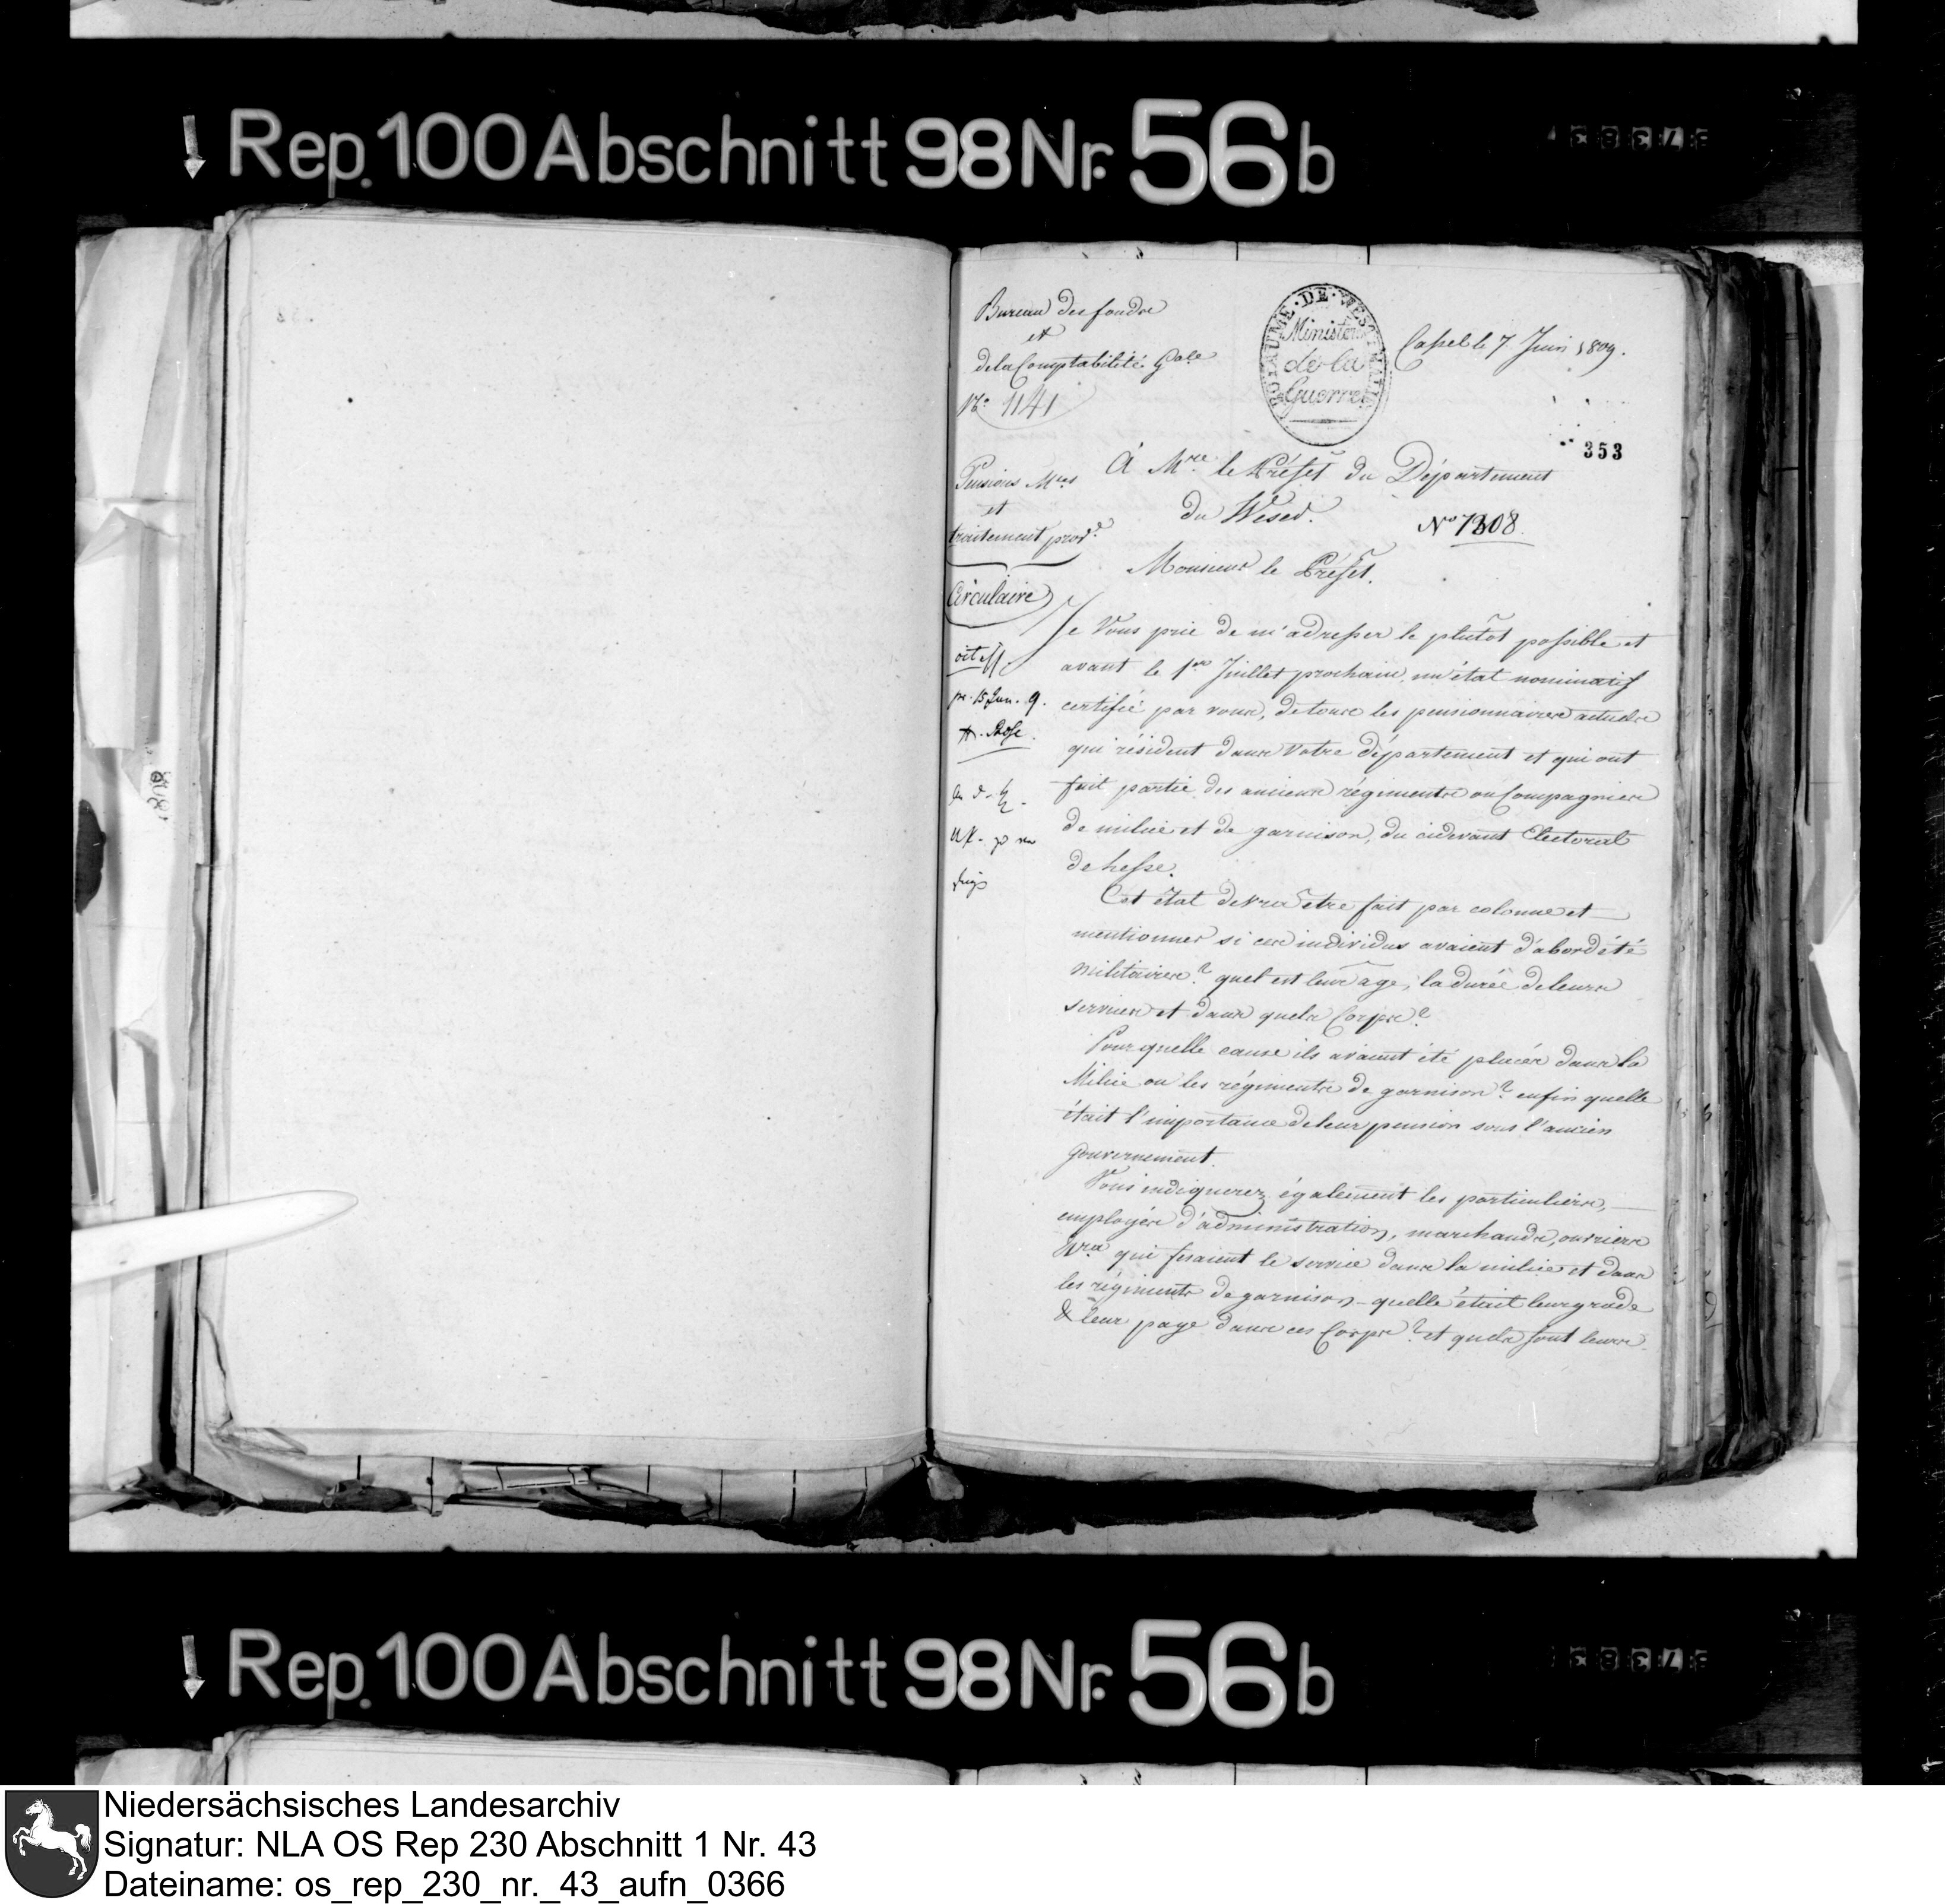 Rep. 100 Abschnitt 98 Nr. 56 b
Bureau des fonds
et
de la Comptabilité Gale
No. 1141
ROYAUME · DE · WESTPHALIE
Ministère
de la
Guerre
Cassel le 7 Juin 1809.
353
Pensions Mres
et
traitement prov.e
Circulaire
A Mr. le Préfet du Département
du Weser.
No 1308
Monsieur le Préfet.
Je Vous prie de m'adresser le plutôt possible et
avant le 1er Juillet prochain, un état nominatif
certifié par vous, de tous les pensionnaires actuels
qui résident dans Votre département et qui ont
fait partie des anciens régiments ou Compagnies
de milice et de garnison, du cidevant Electorat
de hesse.
Cet état devra etre fait par colonne et
mentionner si ces individus avaient d'abord été
militaires? quel est leur age, la durée de leurs
services et dans quels Corps?
Pour quelle cause ils avaient été placés dans la
Milice ou les régiments de garnison? enfin quelle
était l'importance de leur pension sous l'ancien
gouvernement.
Vous indiquerez également les particuliers,
employés d'administration, marchands, ouvriers
qui fesaient le service dans la milice et dans
les régiments de garnison - quelle était leur grade
& leur paye dans ces Corps? et quels sont leurs
pr. 15 Jun. 9.
Rep. 100 Abschnitt 98 Nr. 56 b
Niedersächsisches Landesarchiv
Signatur: NLA OS Rep 230 Abschnitt 1 Nr. 43
Dateiname: os_rep_230_nr._43_aufn_0366